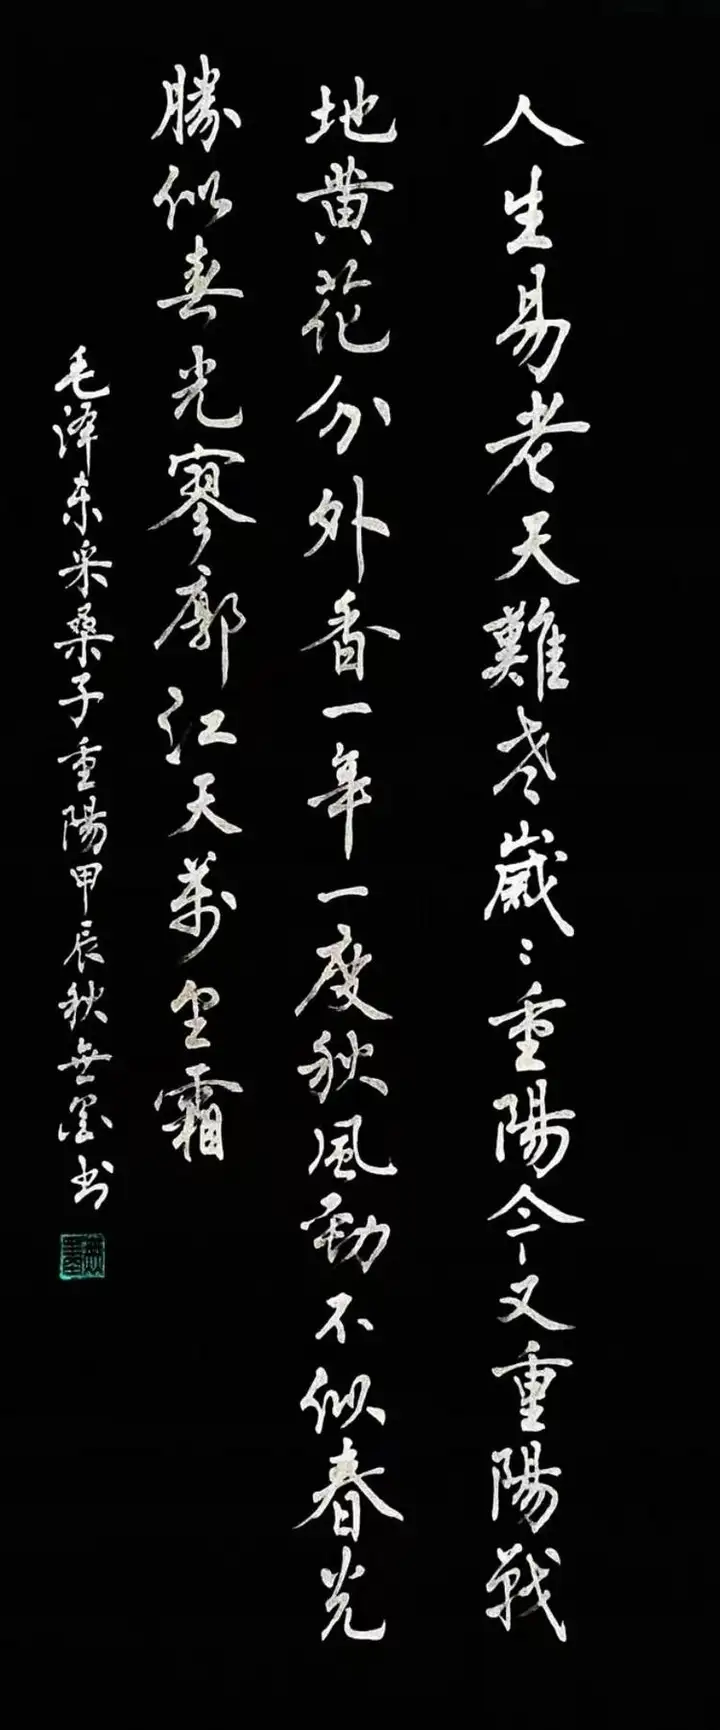 人生易老天難老歲〻重陽今又重陽戰
地黄花分外香一年一度秋風動不似春光
勝似春光寥廓江天萬里霜
毛泽东采桑子重陽甲辰秋無墨书